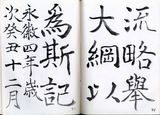 流略舉
大綱以
為斯記
永徽四年歲
次癸丑十二月